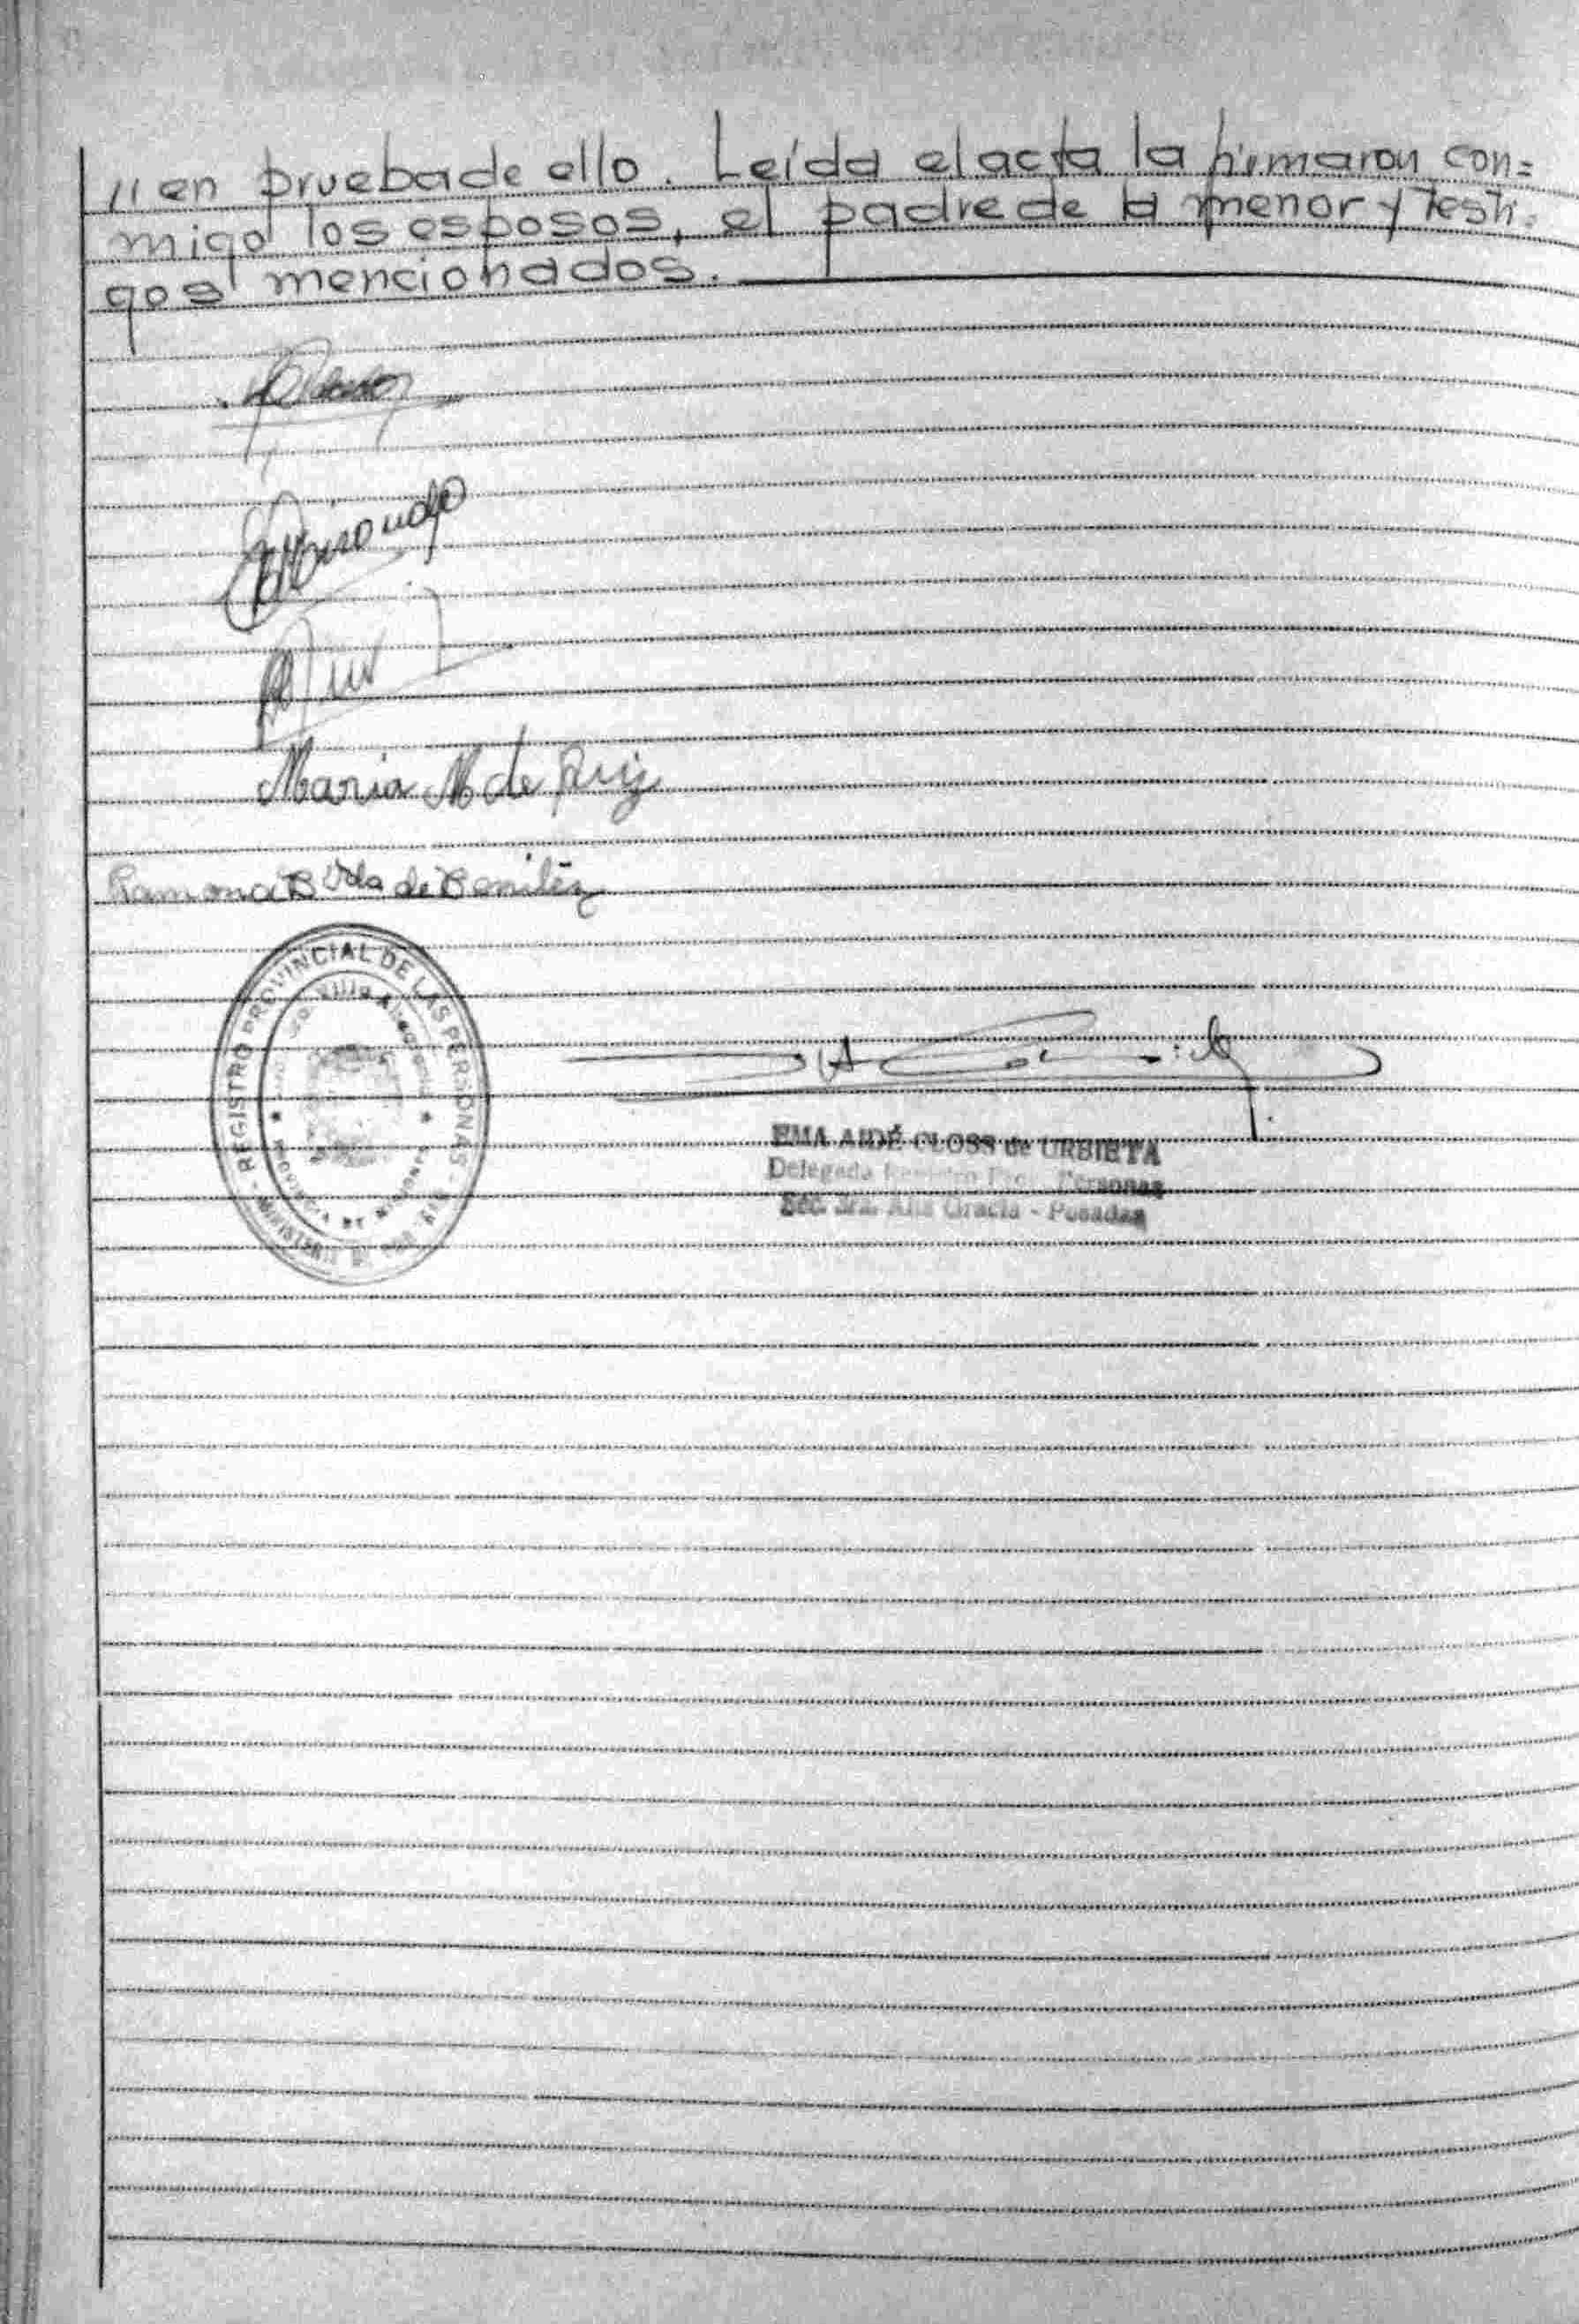 // en prueba de ello. Leída el acta la firmaron con=
migo los esposos, el padre de la menor y testi-
gos mencionados.
Maria M de Ruiz
Ramona B Vda de Benitez
REGISTRO PROVINCIAL DE LAS PERSONAS
Villa
PROVINCIA DE MISIONES
EMA AIDÉ CLOSS de URBIETA
Delegada Registro Prov. Personas
Sec. 3ra. Alta Gracia - Posadas